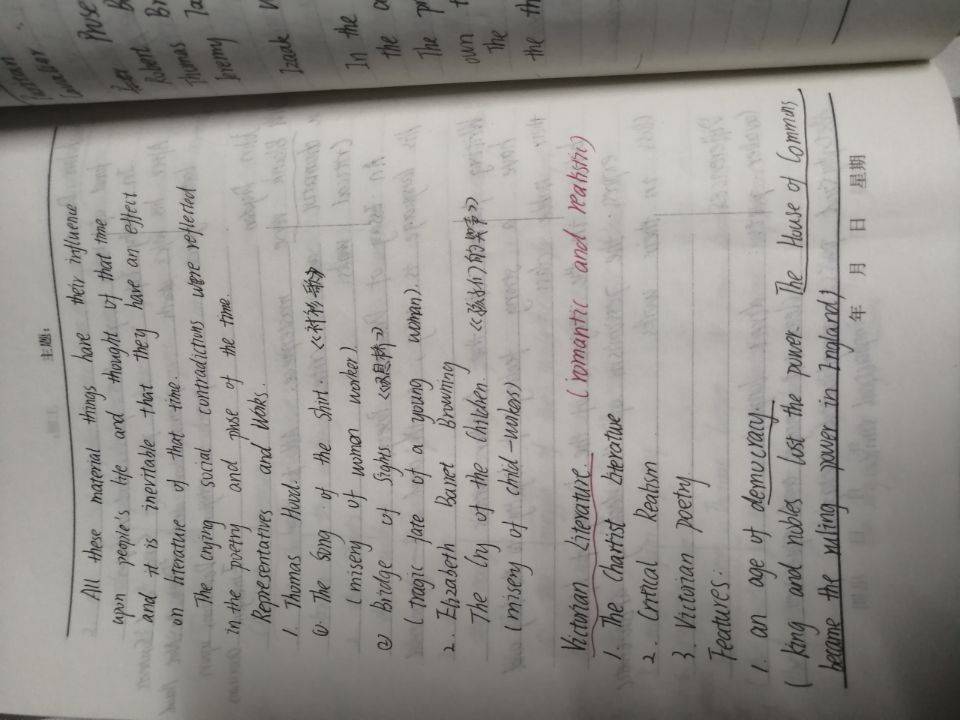 主题:
All these material things have their influence
upon people's life and thought of that time
and it is inevitable that they have an effect
on literature of that time.
The crying social contradictions were reflected
in the poetry and prose of the time.
Representatives and Works.
1. Thomas Hood.
① The Song of the Shirt. 《衬衫歌》
(misery of women worker)
② bridge of Sighs 《叹息桥》
(tragic fate of a young woman).
2. Elizabeth Barret Browning
The Cry of the Children. 《孩子们的哭声》
(misery of chid-workers)
Victorian Literature. (romantic and realistic)
1. The Chartist Literature
2. Critical Realism
3. Victorian poetry
Features.
1. an age of democracy
(king and nobles lost the power. The House of Commons
became the ruling power in England)
年 月 日 星期
Prose
Robert
Thomas
Jeremy
Izaak
In the
the
The
own
the
the